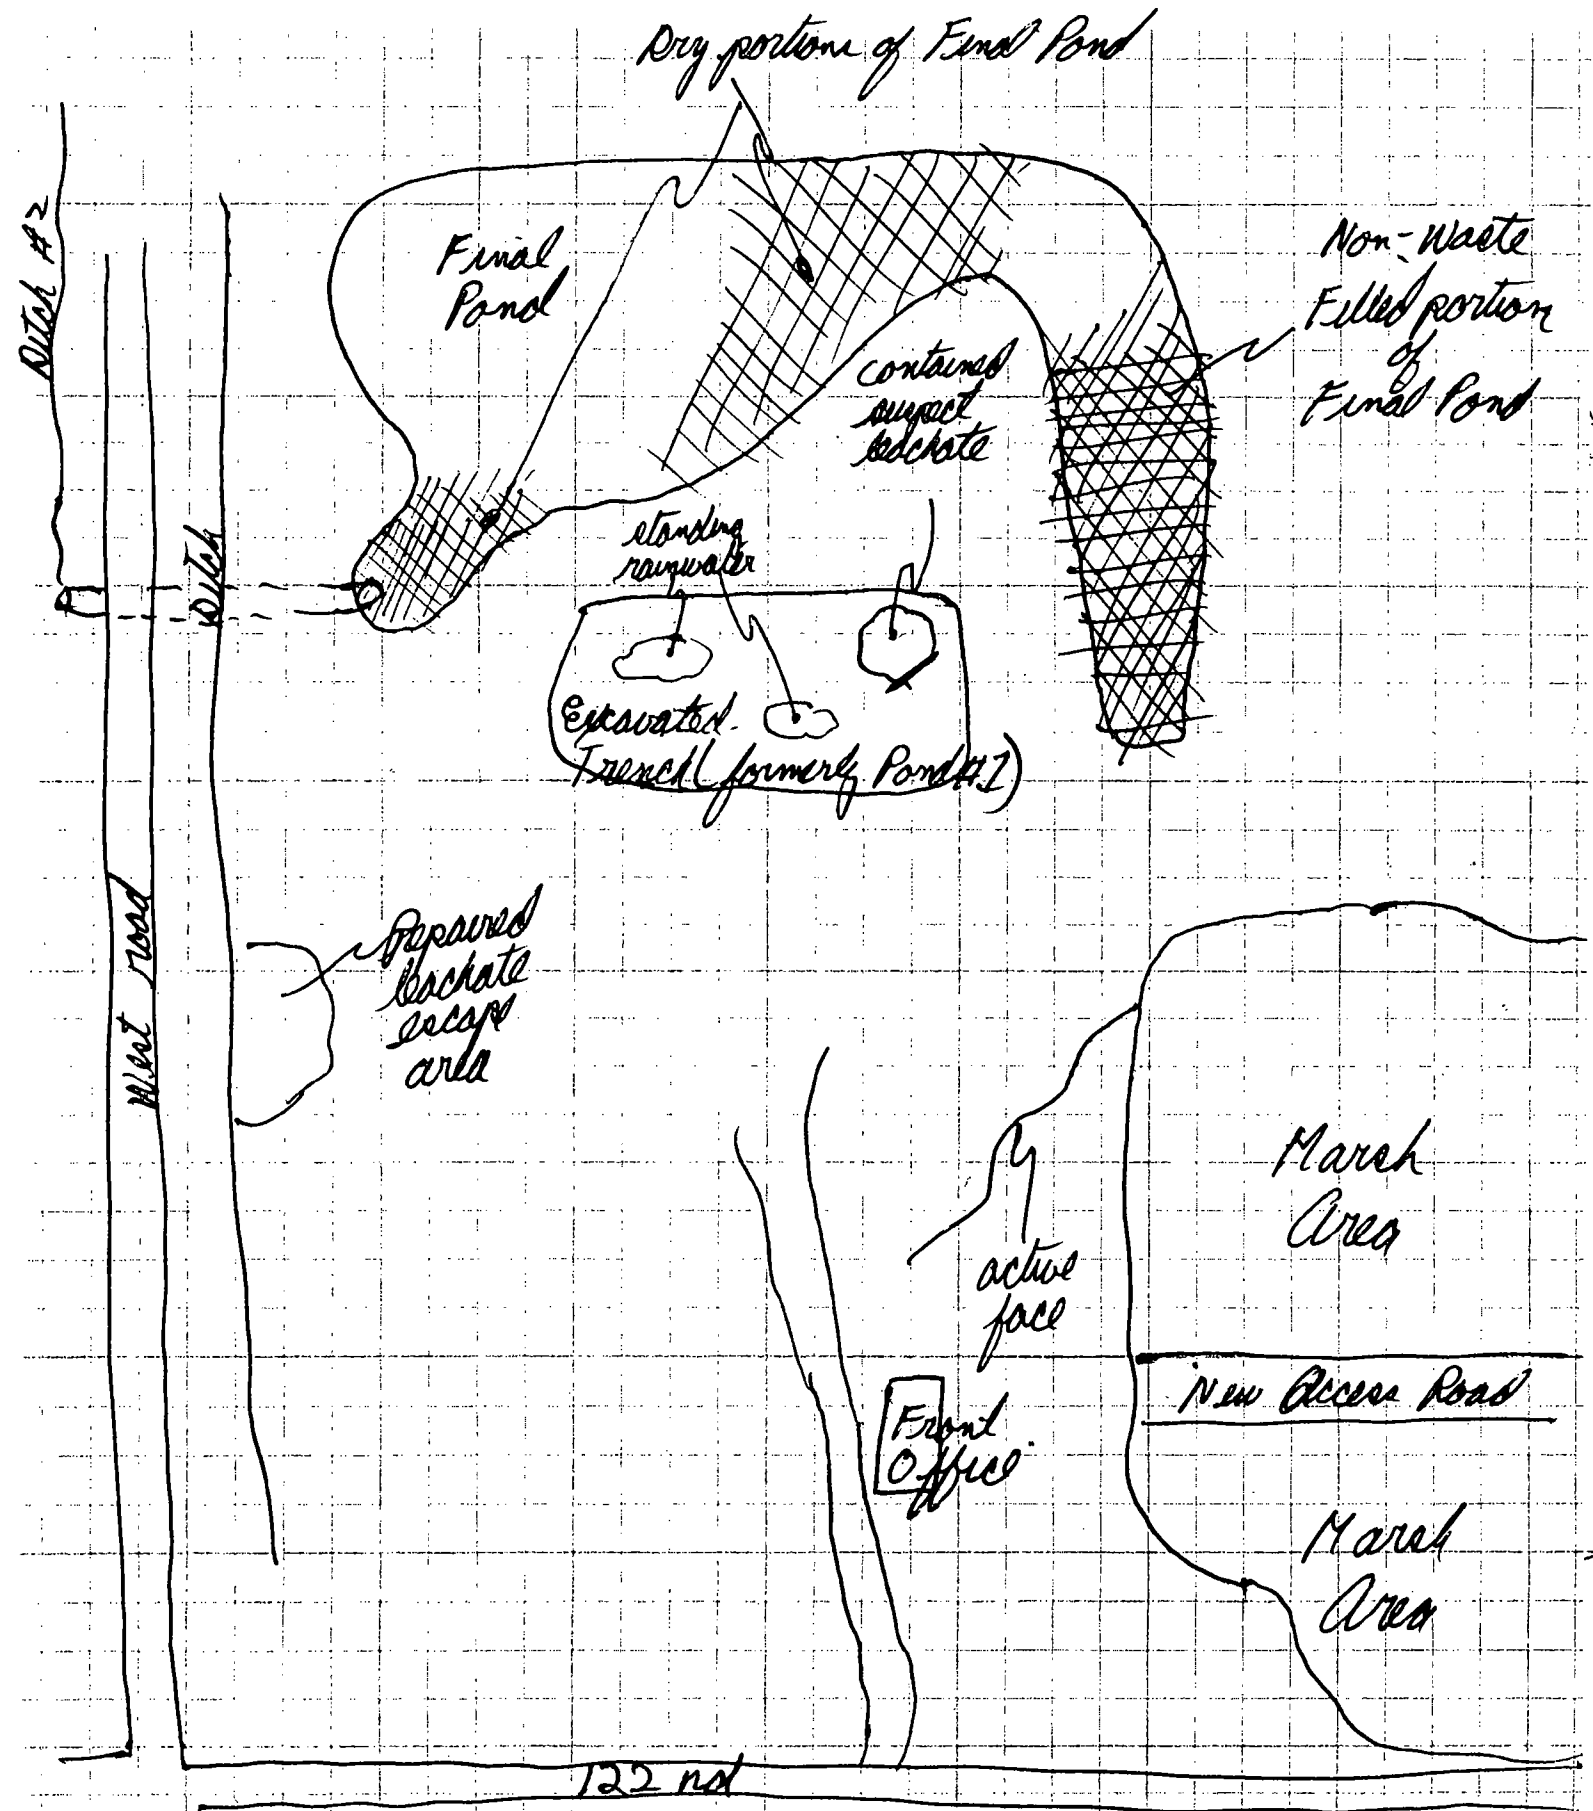 Dry portions of Final Pond
Ditch #2
Final
Pond
Non-Waste
Filled portion
of
Final Pond
contained
suspect
leachate
Ditch
standing
rainwater
Excavated
Trench (formerly Pond #1)
West road
Repaired
leachate
escape
area
Marsh
Area
active
face
New Access Road
Front
Office
Marsh
Area
122 nd